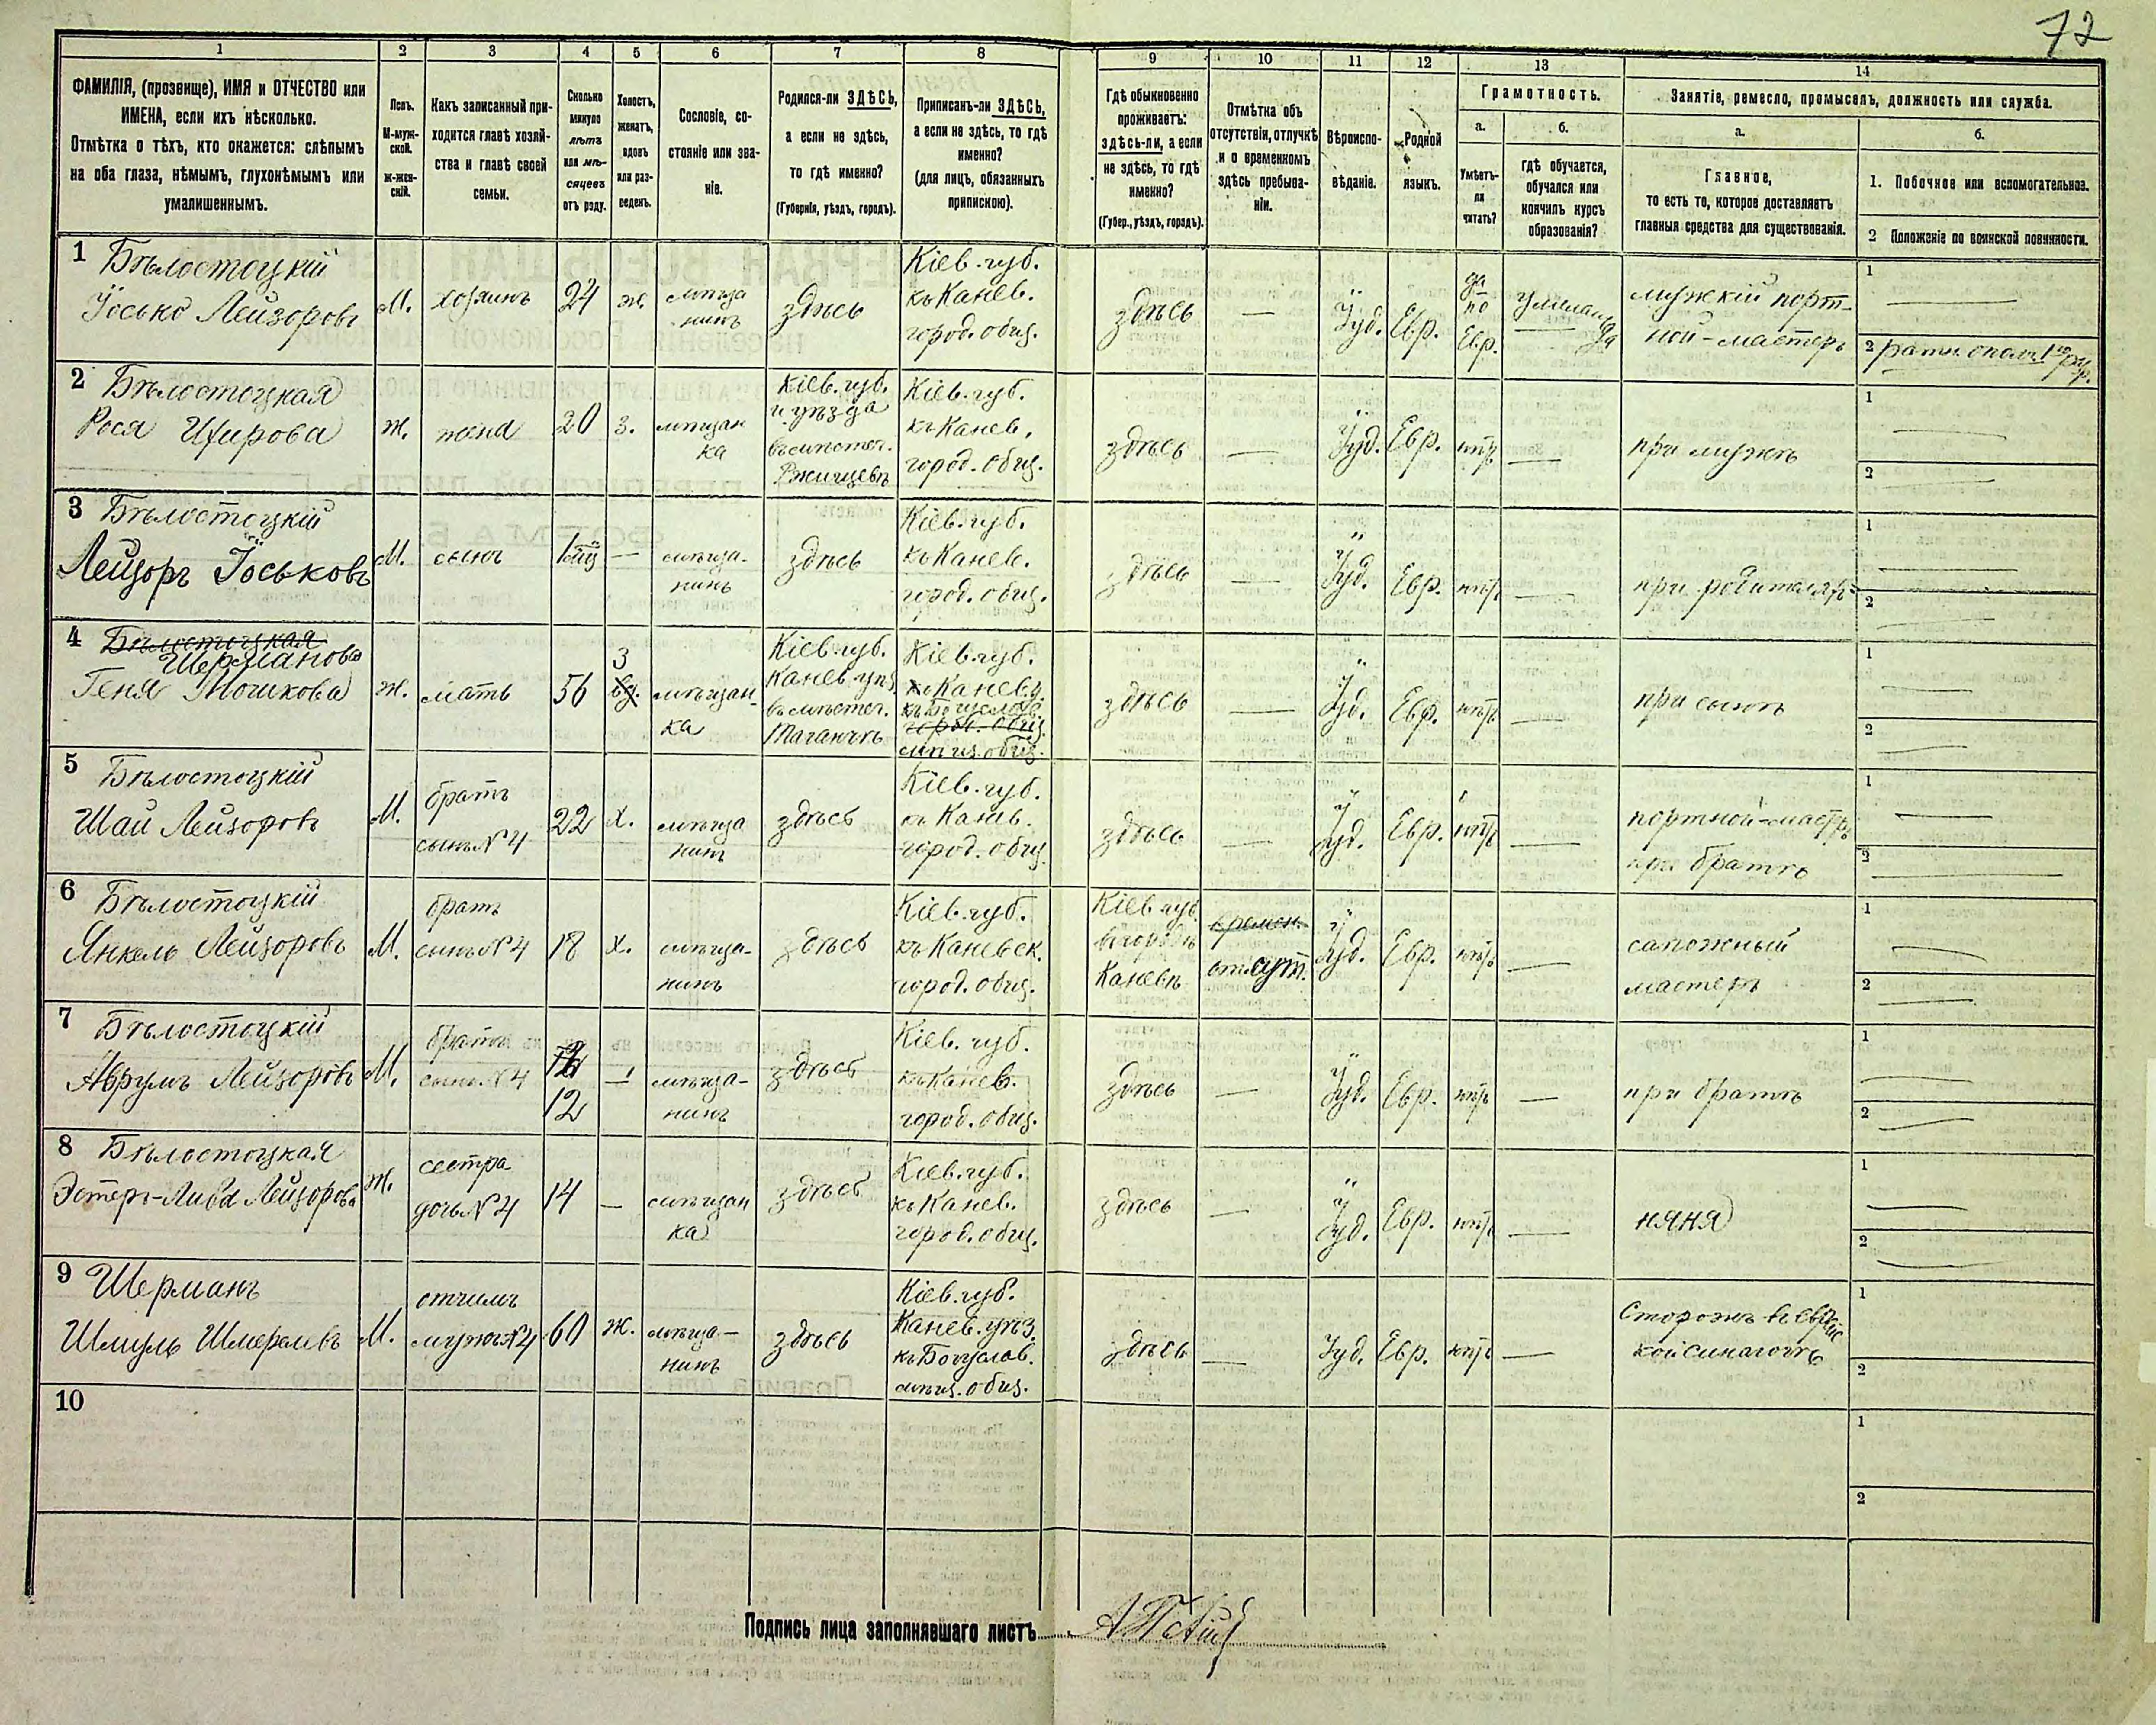 72
1
2
3
4
5
6
7
8
9
10
11
12
13
14
ФАМИЛІЯ, (прозвище), ИМЯ и ОТЧЕСТВО или
ИМЕНА, если ихъ нѣсколько.
Отмѣтка о тѣхъ, кто окажется: слѣпымъ
на оба глаза, нѣмымъ, глухонѣмымъ или
умалишеннымъ.
Полъ.
М-муж-
ской.
ж-жен-
скій.
Какъ записанный при-
ходится главѣ хозяй-
ства и главѣ своей
семьи.
Сколько
минуло
лѣтъ
или мѣ-
сяцевъ
отъ роду.
Холостъ,
женатъ,
вдовъ
или раз-
веденъ.
Сословіе, со-
стояніе или зва-
ніе.
Родился-ли ЗДѢСЬ,
а если не здѣсь,
то гдѣ именно?
(Губернія, уѣздъ, городъ).
Приписанъ-ли ЗДѢСЬ,
а если не здѣсь, то гдѣ
именно?
(для лицъ, обязанныхъ
припискою).
Гдѣ обыкновенно
проживаетъ:
здѣсь-ли, а если
не здѣсь, то гдѣ
именно?
(Губер., уѣздъ, городъ).
Отмѣтка объ
отсутствіи, отлучкѣ
и о временномъ
здѣсь пребыва-
ніи.
Вѣроиспо-
вѣданіе.
Родной
языкъ.
Грамотность.
а.
Умѣетъ-
ли
читать?
б.
гдѣ обучается,
обучался или
кончилъ курсъ
образованія?
Занятіе, ремесло, промыселъ, должность или служба.
а.
Главное,
то есть то, которое доставляетъ
главныя средства для существованія.
б.
1. Побочное или вспомогательное.
2 Положеніе по воинской повинности.
1 Бѣлостоцкій
Іосько Лейзоровъ
М.
хозяинъ
24
ж.
мѣща
нинъ
здѣсь
Кіев. губ.
къ Канев.
город. общ.
здѣсь
—
Іуд.
Евр.
да
по
Евр.
мужскій порт-
ной-мастеръ
1
2 ратн. опол. 1го разр.
2 Бѣлостоцкая
Рося
ж.
жена
20
з.
мѣщан
ка
Кіев. губ.
и уѣзда
въ мѣстеч.
Ржищевѣ
Кіев. губ.
къ Канев.
город. общ.
здѣсь
—
Іуд.
Евр.
нѣтъ
—
при мужѣ
1
2
3 Бѣлостоцкій
Лейзоръ Іоськовъ
М.
сынъ
—
мѣща-
нинъ
здѣсь
Кіев. губ.
къ Канев.
город. общ.
здѣсь
—
Іуд.
Евр.
нѣтъ
—
при родителяхъ
1
2
4 Бѣлостоцкая
Шерманова
Геня Мошкова
ж.
мать
56
З
вд.
мѣщан-
ка
Кіев. губ.
Канев. уѣз.
въ мѣстеч.
Таганчѣ
Кіев. губ.
Канев. у.
къ Богуслав.
город. общ.
мѣщ. общ.
здѣсь
—
Іуд.
Евр.
нѣтъ
—
при сынѣ
1
2
5 Бѣлостоцкій
Шая Лейзоровъ
М.
братъ
сынъ №4
22
х.
мѣща
нинъ
здѣсь
Кіев. губ.
къ Канев.
город. общ.
здѣсь
—
Іуд.
Евр.
нѣтъ
—
портной-мастеръ
при братѣ
1
2
6 Бѣлостоцкій
Янкель Лейзоровъ
М.
братъ
сынъ №4
18
х.
мѣща-
нинъ
здѣсь
Кіев. губ.
къ Каневск.
город. общ.
Кіев. губ.
въ городѣ
Каневѣ
времен.
отсут.
Іуд.
Евр.
нѣтъ
—
сапожный
мастеръ
1
2
7 Бѣлостоцкій
Аврумъ Лейзоровъ
М.
братъ
сынъ №4
12
—
мѣща-
нинъ
здѣсь
Кіев. губ.
къ Канев.
город. общ.
здѣсь
—
Іуд.
Евр.
нѣтъ
—
при братѣ
1
2
8 Бѣлостоцкая
Эстеръ-Либа Лейзорова
ж.
сестра
дочь №4
14
—
мѣщан
ка
здѣсь
Кіев. губ.
къ Канев.
город. общ.
здѣсь
—
Іуд.
Евр.
нѣтъ
—
няня
1
2
9 Шерманъ
Шмуль Шмерелевъ
М.
отчимъ
мужъ №4
60
ж.
мѣща-
нинъ
здѣсь
Кіев. губ.
Канев. уѣз.
къ Богуслав.
мѣщ. общ.
здѣсь
—
Іуд.
Евр.
нѣтъ
—
Сторожъ въ еврейс
кой синагогѣ
1
2
10
1
2
Подпись лица заполнявшаго листъ